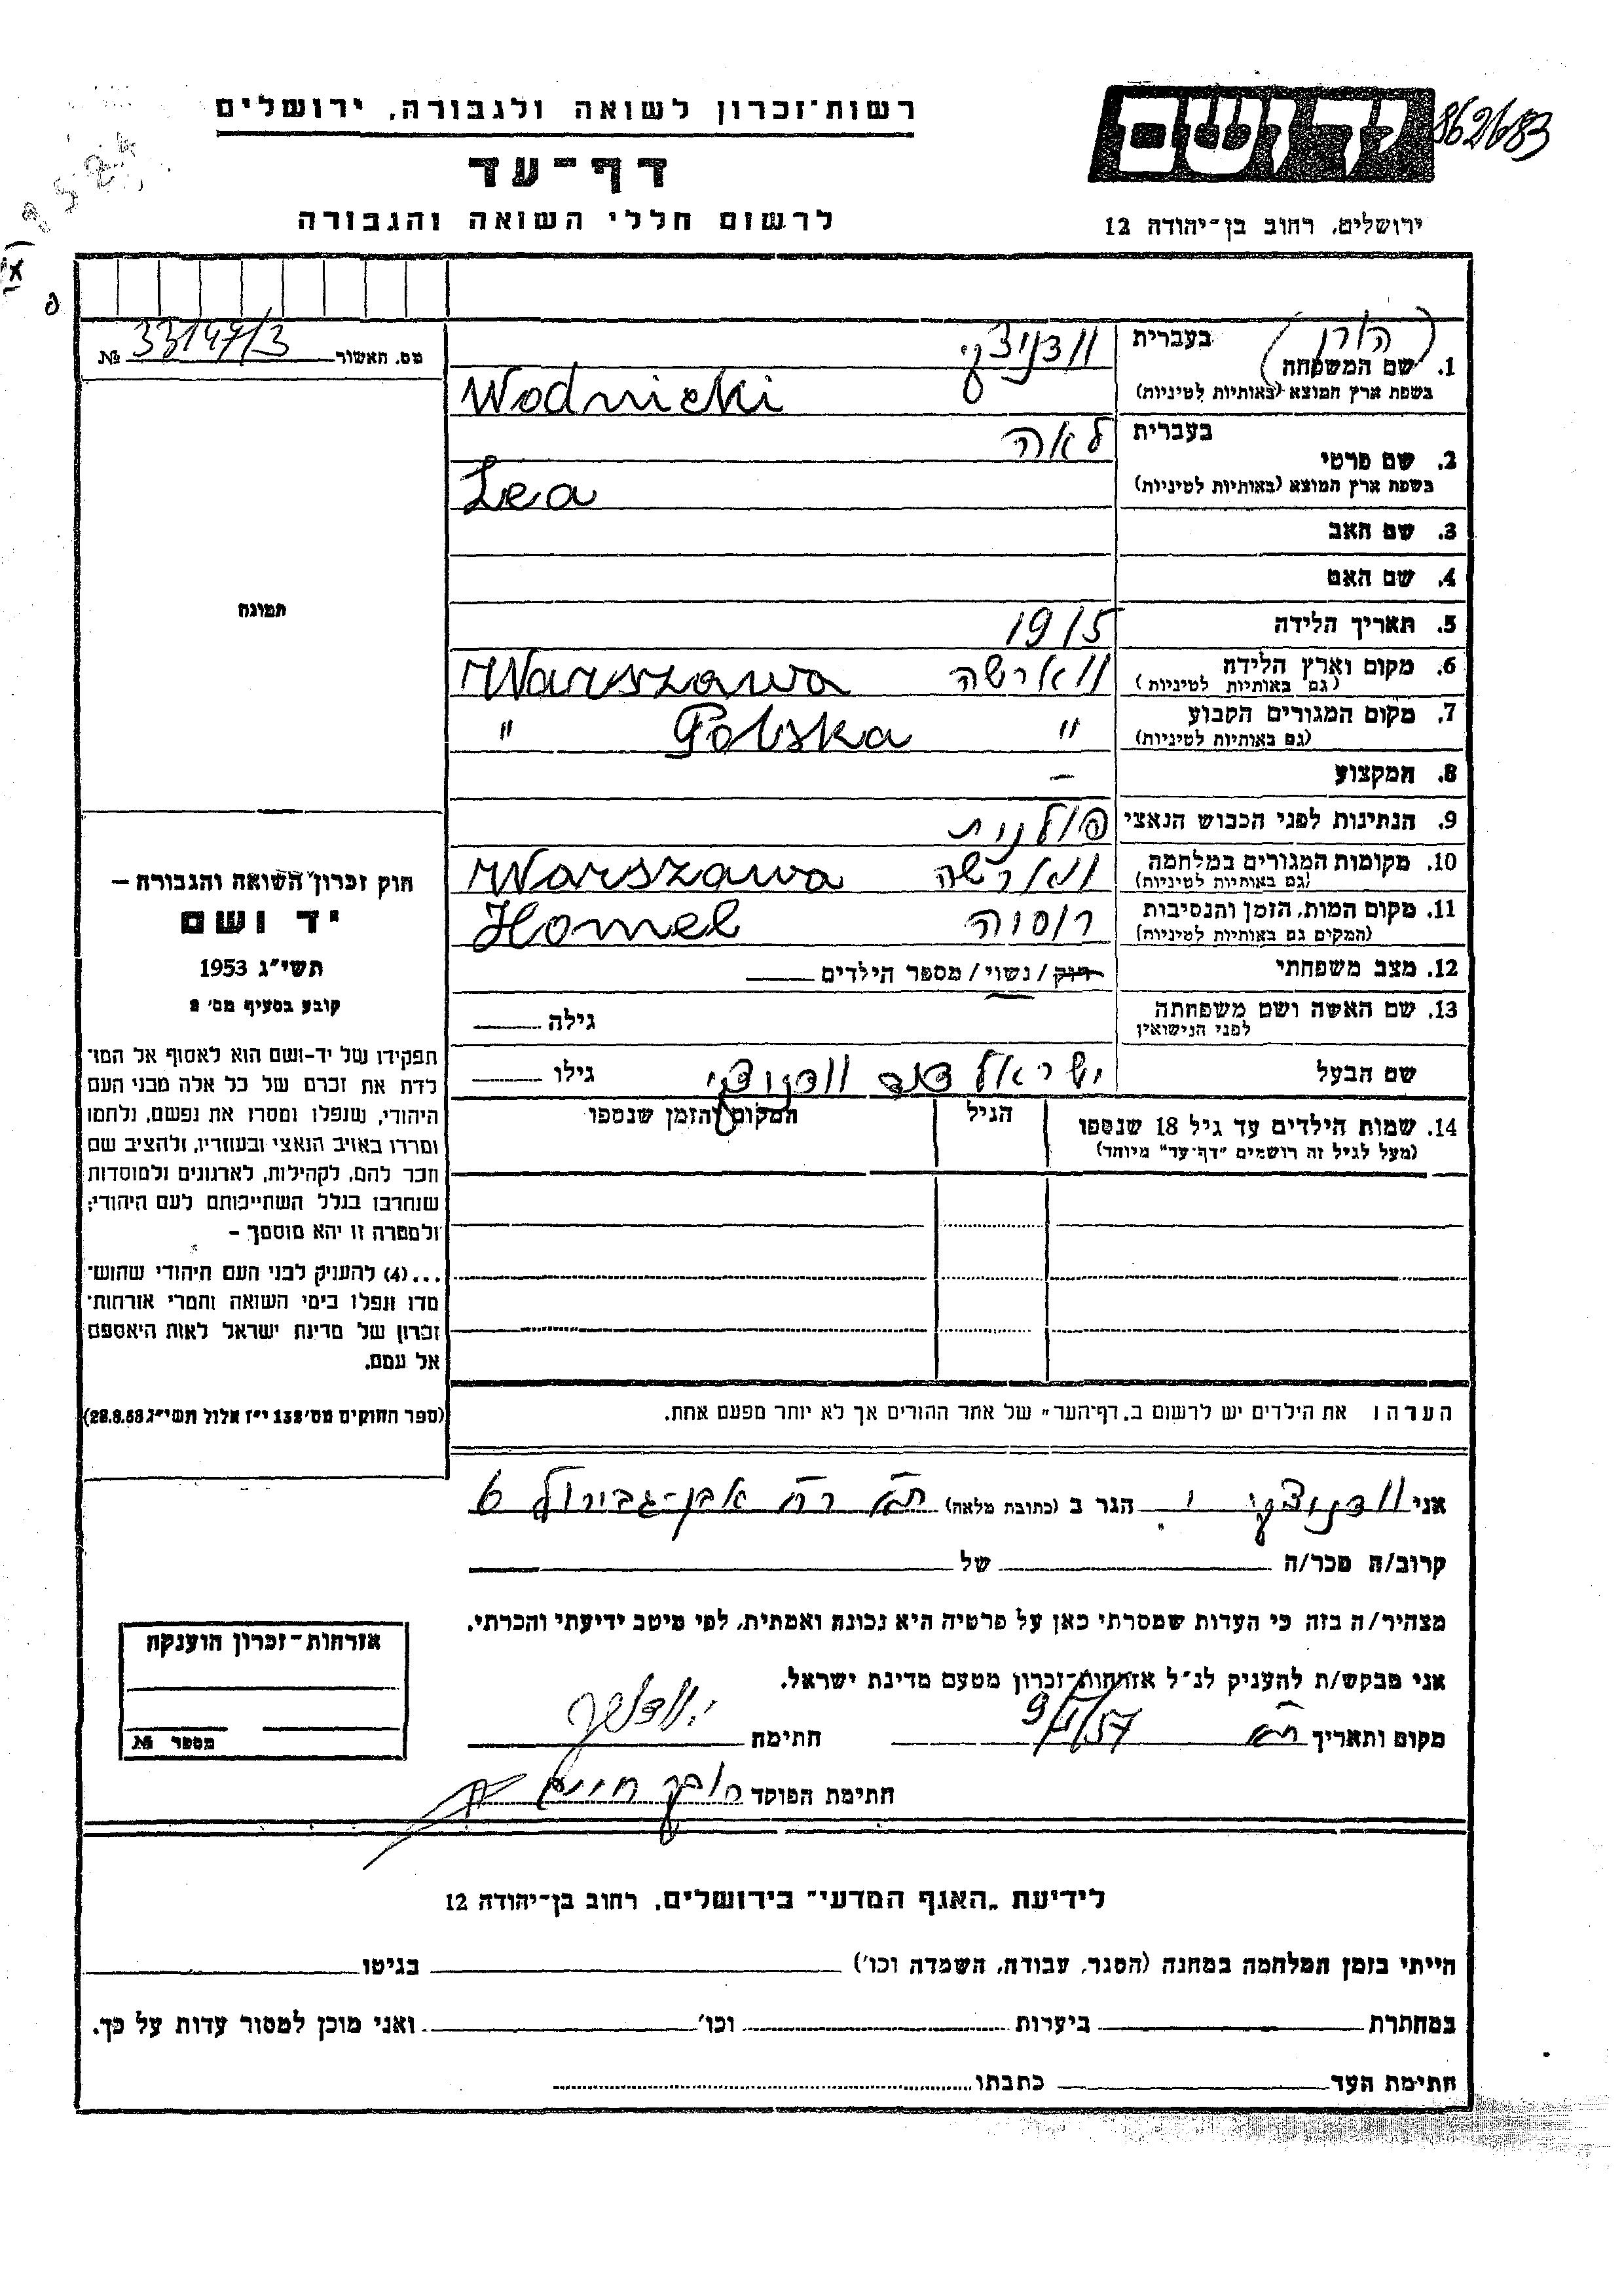 רשות־זכרון לשואה ולגבורה, ירושלים
דף־עד
לרשום חללי השואה והגבורה
יד ושם
862683
ירושלים, רחוב בן־יהודה 12
מס. האשור 33147/3 №
1. שם המשפחה
בעברית וודניצקי
בשפת ארץ המוצא (באותיות לטיניות) Wodnicki
2. שם פרטי
בעברית לאה
בשפת ארץ המוצא (באותיות לטיניות) Lea
3. שם האב
4. שם האם
5. תאריך הלידה 1915
6. מקום וארץ הלידה ווארשה Warszawa
(גם באותיות לטיניות)
7. מקום המגורים הקבוע " Polska "
(גם באותיות לטיניות)
8. המקצוע –
9. הנתינות לפני הכבוש הנאצי פולנית
10. מקומות המגורים במלחמה ווארשה Warszawa
(גם באותיות לטיניות)
11. מקום המות, הזמן והנסיבות רוסיה Homel
(המקום גם באותיות לטיניות)
12. מצב משפחתי רוק/נשוי/מספר הילדים
13. שם האשה ושם משפחתה
לפני הנישואין
גילה
שם הבעל ישראל דוד וודניצקי גילו
14. שמות הילדים עד גיל 18 שנספו
(מעל לגיל זה רושמים "דף־עד" מיוחד)
הגיל
המקום והזמן שנספו
תמונה
חוק זכרון השואה והגבורה –
יד ושם
תשי"ג 1953
קובע בסעיף מס' 2
תפקידו של יד-ושם הוא לאסוף אל המו־
לדת את זכרם של כל אלה מבני העם
היהודי, שנפלו ומסרו את נפשם, נלחמו
ומרדו באויב הנאצי ובעוזריו, ולהציב שם
וזכר להם, לקהילות, לארגונים ולמוסדות
שנחרבו בגלל השתייכותם לעם היהודי;
ולמטרה זו יהא מוסמך –
...(4) להעניק לבני העם היהודי שהוש־
מדו ונפלו בימי השואה והמרי אזרחות־
זכרון של מדינת ישראל לאות היאספם
אל עמם.
(ספר החוקים מס' 132 י"ז אלול תשי"ג 28.8.53)
הערה: את הילדים יש לרשום ב„דף־העד" של אחד ההורים אך לא יותר מפעם אחת.
אני וודניצקי י הגר ב (כתובת מלאה) ת"א רח אבן-גבירול 6
קרוב/ה מכר/ה של
מצהיר/ה בזה כי העדות שמסרתי כאן על פרטיה היא נכונה ואמתית, לפי מיטב ידיעתי והכרתי.
אני מבקש/ת להעניק לנ"ל אזרחות־זכרון מטעם מדינת ישראל.
מקום ותאריך ת"א 9/V/57 חתימה
חתימת הפוקד
אזרחות־זכרון הוענקה
מספר №
לידיעת „האגף המדעי" בירושלים, רחוב בן־יהודה 12
הייתי בזמן המלחמה במחנה (הסגר, עבודה, השמדה וכו') בגיטו
במחתרת ביערות וכו' ואני מוכן למסור עדות על כך.
חתימת העד כתבתו